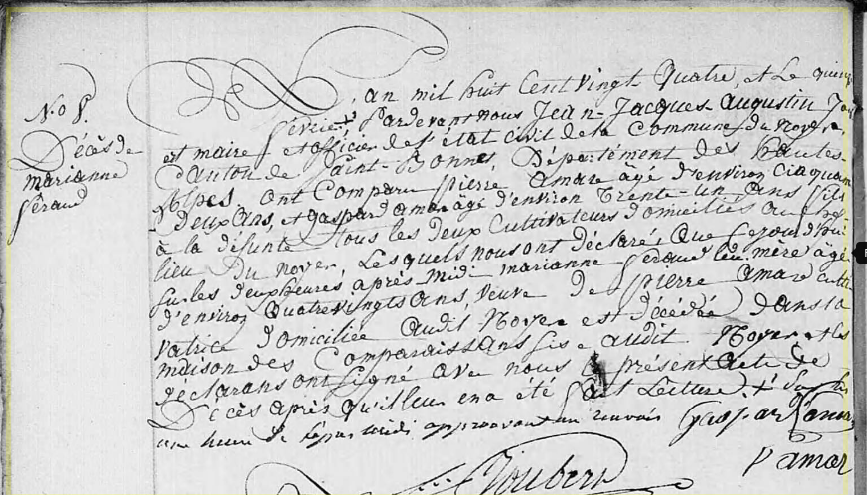 No 8.
Décès de
marianne
Séraud
an mil huit Cent vingt Quatre, et Le quinze
février, Pardevant nous Jean-Jacques-augustin
est maire et officier de l'état civil de la Commune du Noyer,
Canton de Saint-Bonnet, Département des hautes-
Alpes ont Comparu pierre amar agé d'environ Cinquan
Deux ans, et gaspard amar agé d'environ trente-un ans fils
à la défunte tous les deux Cultivateurs domiciliés au chef
lieu Du noyer, Lesquels nous ont déclaré, que Cejourd'hui
sur les deux heures après midi marianne Séraud leur mère agée
d'environ Quatrevingts ans, veuve De pierre amar culti
vatrice domiciliée audit Noyer est décédée dans la
maison des Comparaissans sise audit Noyer, et les
déclarans ont signé avec nous le présent acte de
Décès après qu'illeur en a été fait Lecture,
une heure de midi approuvant un renvoi gaspar amar
Joubert
P amar